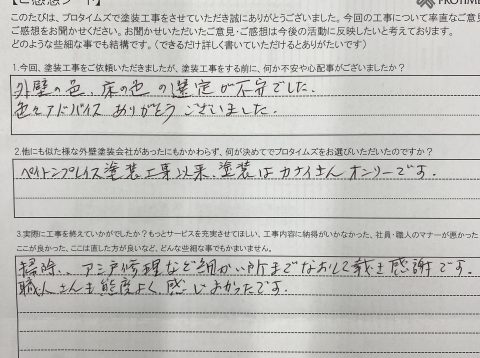 このたびは、プロタイムズで塗装工事をさせていただき誠にありがとうございました。今回の工事について率直なご意見
ご感想をお聞かせください。お聞かせいただいたご意見・ご感想は今後の活動に反映したいと考えております。
どのような些細な事でも結構です。（できるだけ詳しく書いていただけるとありがたいです）
1.今回、塗装工事をご依頼いただきましたが、塗装工事をする前に、何か不安や心配事がございましたか？
外壁の色、床の色の選定が不安でした。
色々アドバイスありがとうございました。
2.他にも似た様な外壁塗装会社があったにもかかわらず、何が決めてでプロタイムズをお選びいただいたのですか？
ペイトンプレイス塗装工事以来、塗装はカナイさんオンリーです。
3.実際に工事を終えていかがでしたか？もっとサービスを充実させてほしい、工事内容に納得がいかなかった、社員・職人のマナーが悪かった
ここが良かった、ここは直した方が良いなど、どんな些細な事でもかまいません。
掃除、アミ戸修理など細かい所までなおして戴き感謝です。
職人さんも態度よく、感じよかったです。